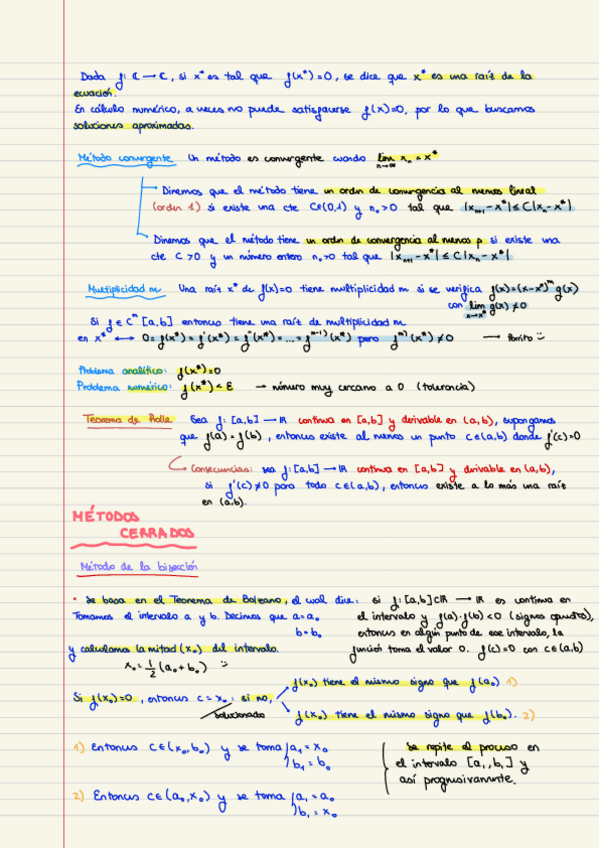 Dada f: ℂ → ℂ, si x* es tal que f(x*)=0, se dice que x* es una raíz de la
ecuación.
En cálculo numérico, a veces no puede satisfacerse f(x)=0, por lo que buscamos
soluciones aproximadas.
Método convergente Un método es convergente cuando lim n→∞ xₙ = x*
Diremos que el método tiene un orden de convergencia al menos lineal
(orden 1) si existe una cte C∈(0,1) y n₀>0 tal que |xₙ₊₁-x*| ≤ C|xₙ-x*|
Diremos que el método tiene un orden de convergencia al menos p si existe una
cte C>0 y un número entero n₀>0 tal que |xₙ₊₁-x*| ≤ C|xₙ-x*|
Multiplicidad m Una raíz x* de f(x)=0 tiene multiplicidad m si se verifica f(x)=(x-x*)ᵐ g(x)
con lim x→x* g(x)≠0
Si f∈Cᵐ[a,b] entonces tiene una raíz de multiplicidad m
en x* ↔ 0=f(x*)=f'(x*)=f''(x*)=...=fᵐ⁻¹⁾(x*) pero fᵐ⁾(x*)≠0 →
Problema analítico: f(x*)=0
Problema numérico: f(x*)<ε → número muy cercano a 0 (tolerancia)
Teorema de Rolle Sea f: [a,b] → ℝ continua en [a,b] y derivable en (a,b), supongamos
que f(a)=f(b), entonces existe al menos un punto c∈(a,b) donde f'(c)=0
Consecuencias: sea f:[a,b] → ℝ continua en [a,b] y derivable en (a,b),
si f'(c)≠0 para todo c∈(a,b), entonces existe a lo más una raíz
en (a,b).
MÉTODOS
CERRADOS
Método de la bisección
• Se basa en el Teorema de Bolzano, el cual dice: si f: [a,b]⊂ℝ → ℝ es continua en
el intervalo y f(a)·f(b)<0 (signos opuestos),
entonces en algún punto de ese intervalo, la
función toma el valor 0. f(c)=0 con c∈(a,b)
Tomamos el intervalo a y b. Decimos que a=a₀
b=b₀
y calculamos la mitad (x₀) del intervalo.
x₀ = 1/2 (a₀+b₀)
Si f(x₀)=0, entonces c=x₀; si no,
solucionado
f(x₀) tiene el mismo signo que f(a₀) 1)
f(x₀) tiene el mismo signo que f(b₀). 2)
1) Entonces c∈(x₀,b₀) y se toma a₁=x₀
b₁=b₀
2) Entonces c∈(a₀,x₀) y se toma a₁=a₀
b₁=x₀
Se repite el proceso en
el intervalo [a₁,b₁] y
así progresivamente.